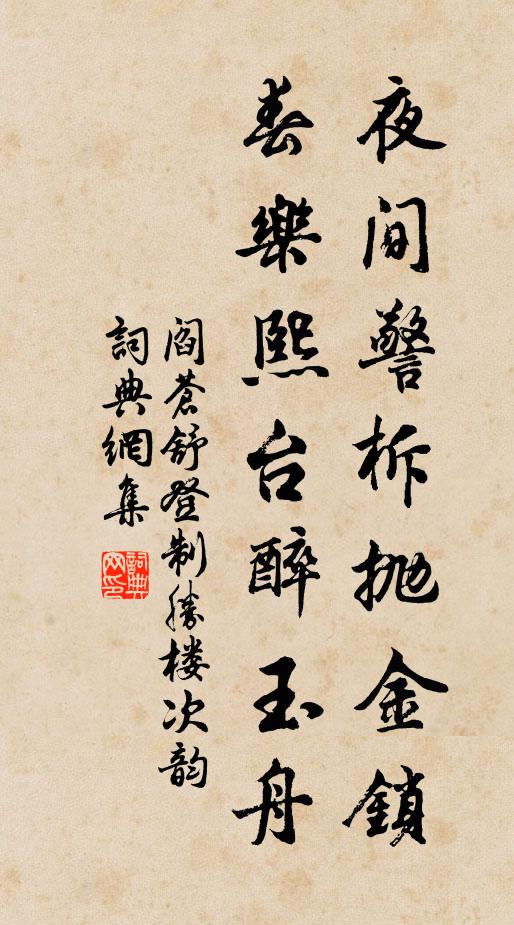 夜間警柝拋金鎖
春樂熙台醉玉舟
閻蒼舒登制勝楼次韵
詞典網集
詞典网印